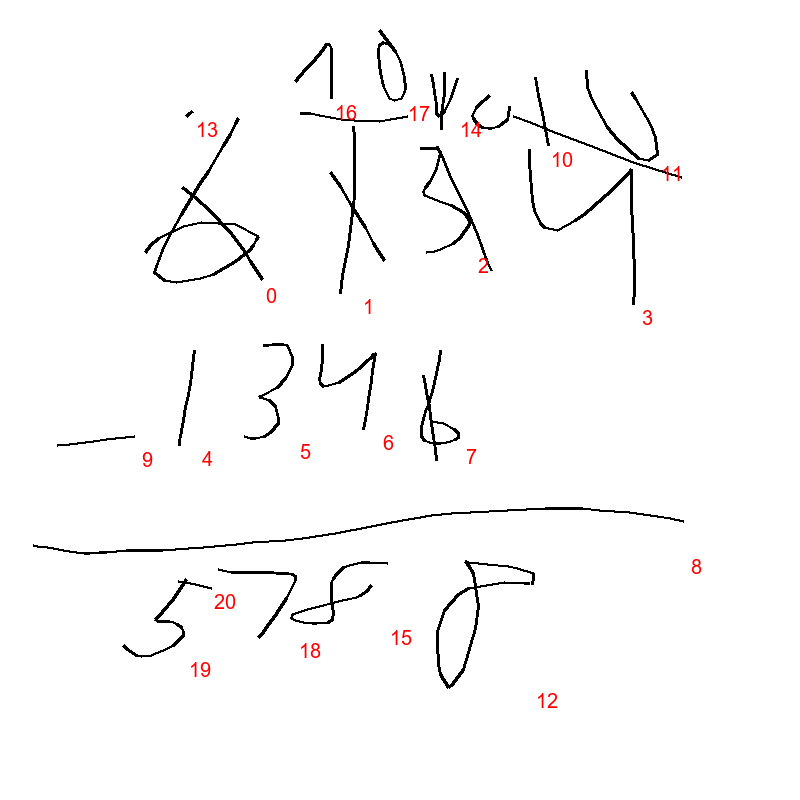 10 10
13 16 17 14 10 11
6134
0 1 2 3
- 1346
9 4 5 6 7
8
5788
20 19 18 15 12